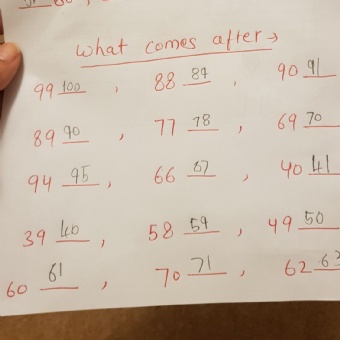 what comes after →
99 100 , 88 89 , 90 91
89 90 , 77 78 , 69 70
94 95 , 66 67 , 40 41
39 40 , 58 59 , 49 50
60 61 , 70 71 , 62 63